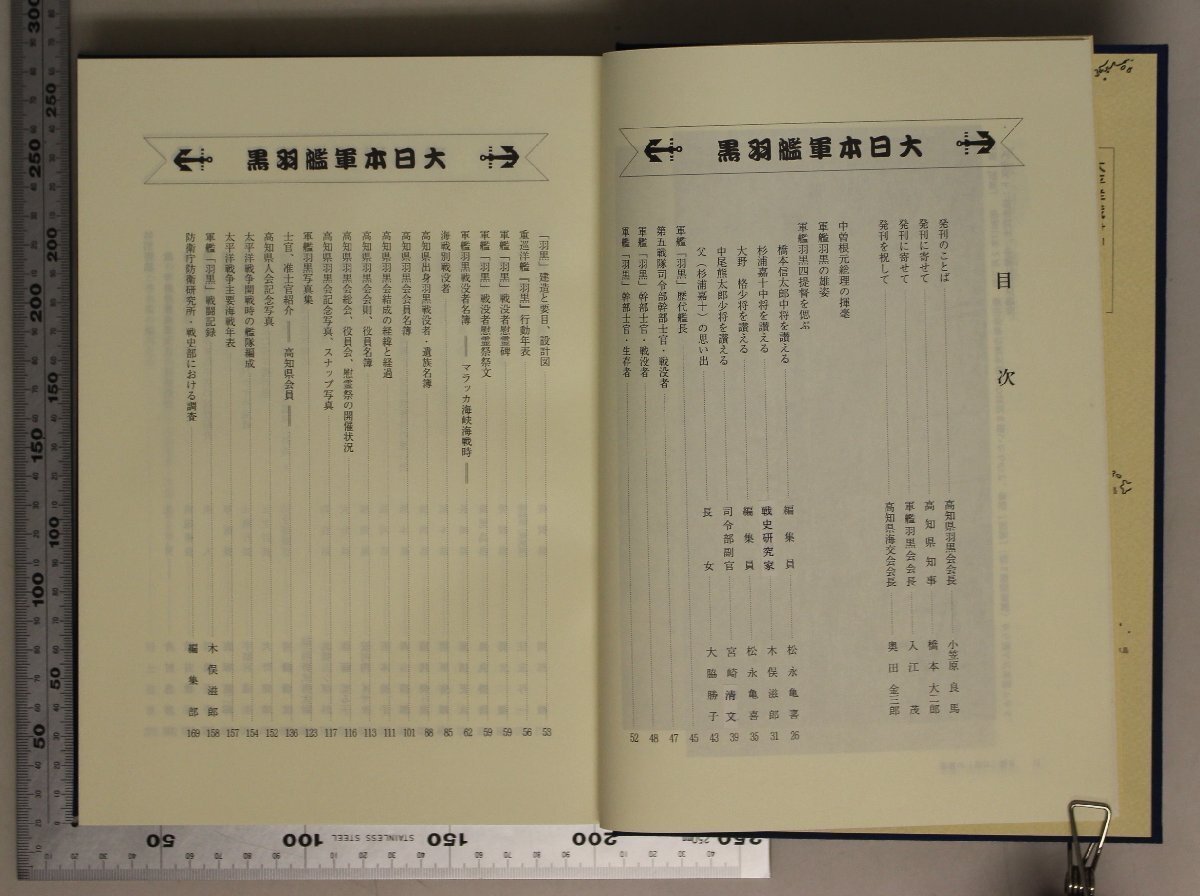 大日本軍艦羽黒
目次
発刊のことば 高知県羽黒会会長 小笠原良馬
発刊に寄せて 高知県知事 橋本大二郎
発刊に寄せて 軍艦羽黒会会長 入江茂
発刊を祝して 高知県海交会会長 奥田金三郎
中曽根元総理の揮毫
軍艦羽黒の雄姿
軍艦羽黒四提督を偲ぶ
橋本信太郎中将を讃える 編集員 松永亀喜 26
杉浦嘉十中将を讃える 戦史研究家 木俣滋郎 31
大野格少将を讃える 編集員 松永亀喜 35
中尾熊太郎少将を讃える 司令部副官 宮崎清文 39
父（杉浦嘉十）の思い出 長女 大脇勝子 43
軍艦「羽黒」歴代艦長 45
第五戦隊司令部幹部士官・戦没者 47
軍艦「羽黒」幹部士官・戦没者 48
軍艦「羽黒」幹部士官・生存者 52
大日本軍艦羽黒
「羽黒」建造と要目、設計図 53
重巡洋艦「羽黒」行動年表 56
軍艦「羽黒」戦没者慰霊碑 59
軍艦「羽黒」戦没者慰霊祭祭文 59
軍艦羽黒戦没者名簿 ── マラッカ海峡海戦時 ── 62
海戦別戦没者 85
高知県出身羽黒戦没者・遺族名簿 88
高知県羽黒会会員名簿 101
高知県羽黒会結成の経緯と経過 111
高知県羽黒会会則、役員名簿 113
高知県羽黒会総会、役員会、慰霊祭の開催状況 116
高知県羽黒会記念写真、スナップ写真 117
軍艦羽黒写真集 123
士官、准士官紹介 ── 高知県会員 ── 136
高知県人会記念写真 152
太平洋戦争開戦時の艦隊編成 154
太平洋戦争主要海戦年表 157
軍艦「羽黒」戦闘記録 木俣滋郎 158
防衛庁防衛研究所・戦史部における調査 編集部 169
50
100
150
200
250
300
STAINLESS STEEL